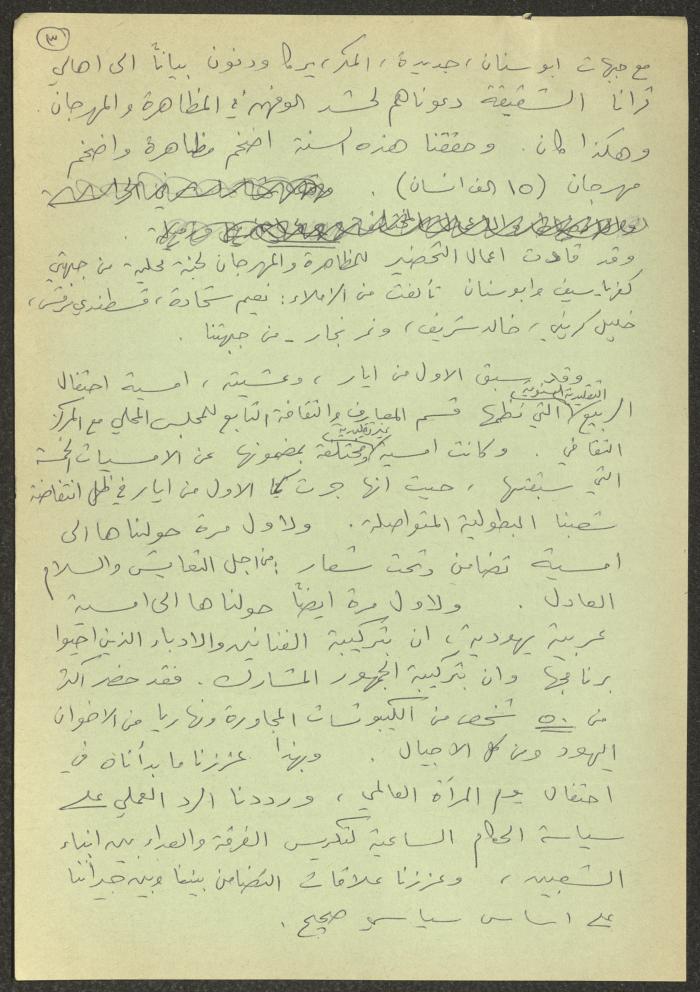 ٣
مع جبهات ابوسنان، جديدة، المكر، يركا ودنون بياناً الى اهالي
قرانا الشقيقة دعوناهم لحشد الوفهم في المظاهرة والمهرجان.
وهكذا كان. وحققنا هذه السنة اضخم مظاهرة واضخم
مهرجان (١٥ الف انسان).
وقد قادت اعمال التحضير للمظاهرة والمهرجان لجنة محلية من جبهتي
كفرياسيف وابوسنان تألفت من الزملاء: نعيم شحادة، قسطندي مرقس،
خليل كريني، خالد شريف، ونمر نجار - من جبهتنا.
وقد سبق الاول من ايار، وعشيته، امسية احتفال
التقليدية السنوية
الربيع التي نظمها قسم المعارف والثقافة التابع للمجلس المحلي مع المركز
غير تقليدية
الثقافي. وكانت امسية ومختلفة بمضمونها عن الامسيات الخمسة
التي سبقتها، حيث انها جرت كما الاول من ايار في ظل انتفاضة
شعبنا البطولية المتواصلة. ولاول مرة حولناها الى
امسية تضامن وتحت شعار: من اجل التعايش والسلام
العادل. ولاول مرة ايضاً حولناها الى امسية
عربية يهودية، ان بتركيبة الفنانين والادباء الذين احيوا
برنامجها وان بتركيبة الجمهور المشارك. فقد حضر اكثر
من ٥٠ شخص من الكيبوتسات المجاورة ونهاريا من الاخوان
اليهود ومن كل الاجيال. وبهذا عززنا ما بدأناه في
احتفال يوم المرأة العالمي، ورددنا الرد العملي على
سياسة الحكام الساعية لتكريس الفرقة والعداء بين ابناء
الشعبين، وعززنا علاقات التضامن بيننا وبين جيراننا
على اساس سياسي صحيح.